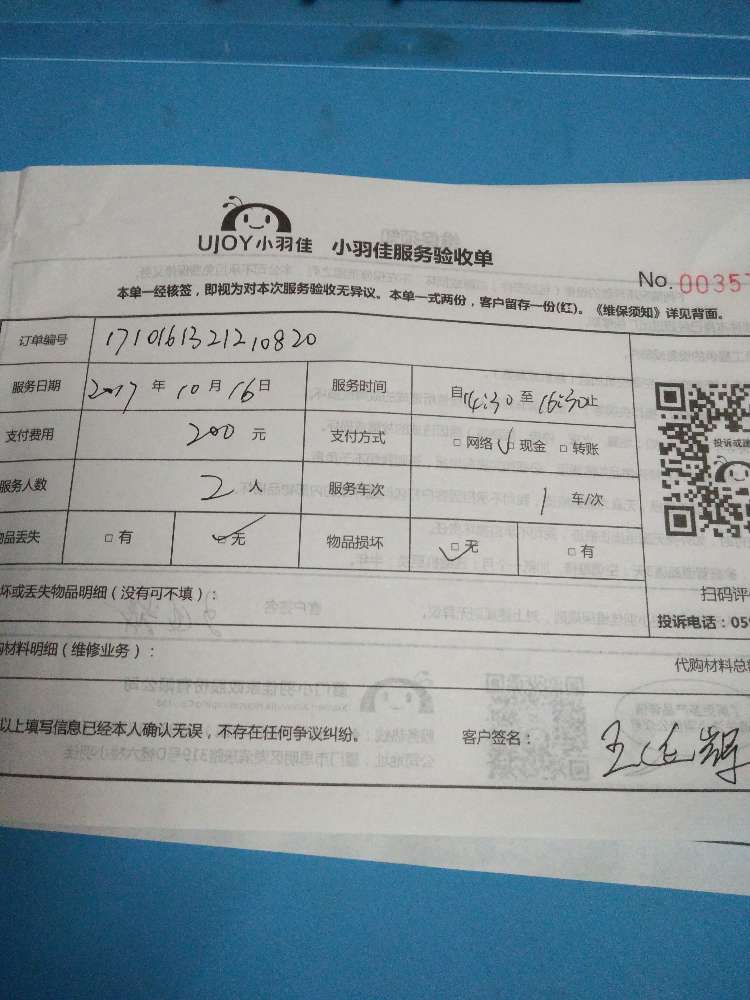 UJOY小羽佳 小羽佳服务验收单
No. 0035
本单一经核签，即视为对本次服务验收无异议。本单一式两份，客户留存一份(红)。《维保须知》详见背面。
订单编号 1710161321210820
服务日期 2017 年 10 月 16 日 服务时间 自14:30 至 16:30止
支付费用 200 元 支付方式 □ 网络 □ 现金 □ 转账
投诉或建
服务人数 2 人 服务车次 1 车/次
物品丢失 □ 有 □ 无 物品损坏 □ 无 □ 有
坏或丢失物品明细（没有可不填）：
扫码评
投诉电话：059
购材料明细（维修业务）：
代购材料总
以上填写信息已经本人确认无误，不存在任何争议纠纷。 客户签名：